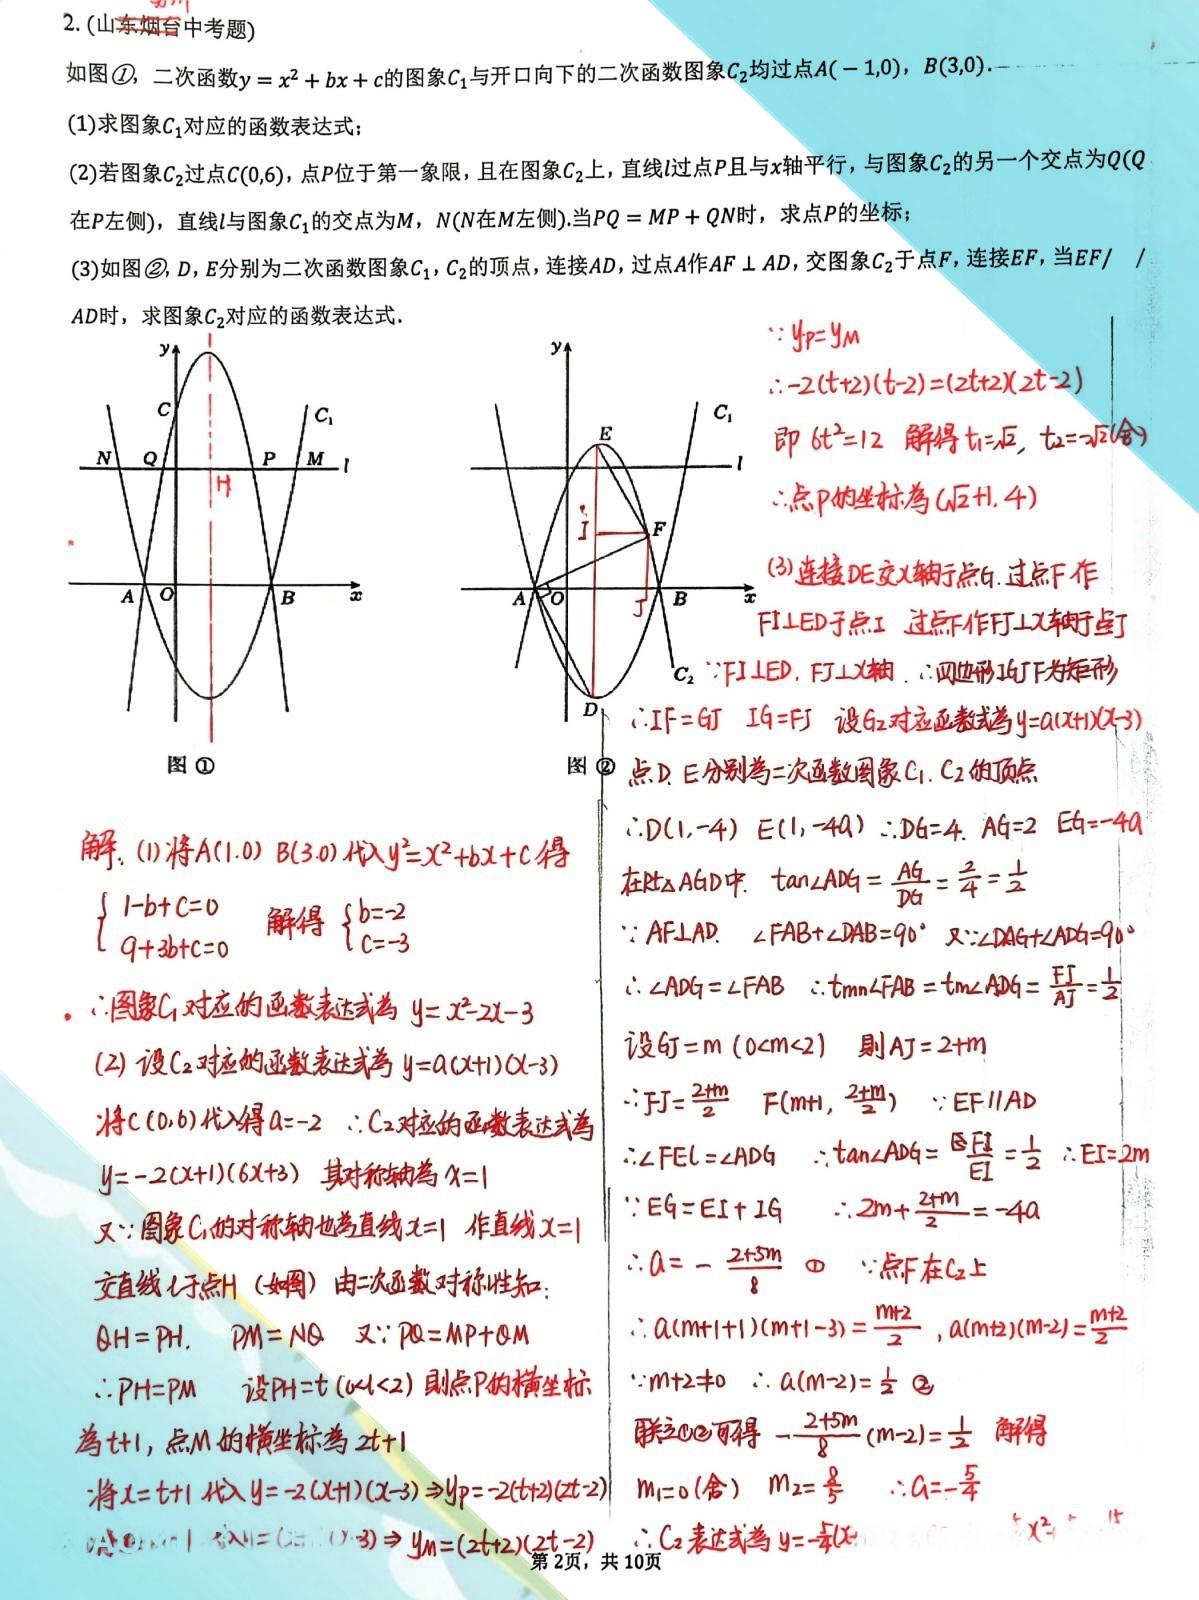 2. (山东烟台中考题)
如图①，二次函数y = x² + bx + c的图象C₁与开口向下的二次函数图象C₂均过点A( − 1,0)，B(3,0).
(1)求图象C₁对应的函数表达式；
(2)若图象C₂过点C(0,6)，点P位于第一象限，且在图象C₂上，直线l过点P且与x轴平行，与图象C₂的另一个交点为Q(Q
在P左侧)，直线l与图象C₁的交点为M，N(N在M左侧).当PQ = MP + QN时，求点P的坐标；
(3)如图②，D，E分别为二次函数图象C₁，C₂的顶点，连接AD，过点A作AF ⊥ AD，交图象C₂于点F，连接EF，当EF/ /
AD时，求图象C₂对应的函数表达式.
y
C
C₁
N Q P M l
H
A O B x
图 ①
y
E
C₁
l
I F
A O J B x
C₂
D
图 ②
解. (1)将A(1.0) B(3.0)代入y²=x²+bx+c得
{ 1-b+c=0
9+3b+c=0 解得 { b=-2
c=-3
∴图象C₁对应的函数表达式為 y=x²-2x-3
(2) 设C₂对应的函数表达式為 y=a(x+1)(x-3)
将C(0,6)代入得a=-2 ∴C₂对应的函数表达式為
y=-2(x+1)(6x+3) 其对称轴為x=1
又∵图象C₁的对称轴也為直线x=1 作直线x=1
交直线l于点H (如图) 由二次函数对称性知:
QH=PH. PM=NQ 又∵PQ=MP+QM
∴PH=PM 设PH=t (0<t<2) 則点P的横坐标
為t+1, 点M的横坐标為2t+1
将x=t+1代入y=-2(x+1)(x-3)⇒yP=-2(t+2)(2t-2)
-3)⇒yM=(2t+2)(2t-2)
∵yP=yM
∴-2(t+2)(t-2)=(2t+2)(2t-2)
即 6t²=12 解得 t₁=√2, t₂=-√2(舍)
∴点P的坐标為(√2+1, 4)
(3)连接DE交X轴于点G. 过点F作
FI⊥ED于点I 过点F作FJ⊥X轴于点J
∵FI⊥ED. FJ⊥X轴. ∴四边形IGJF为矩形
∴IF=GJ IG=FJ 设G₂对应函数式為y=a(x+1)(x-3)
点D. E分别為二次函数图象C₁. C₂的顶点
∴D(1,-4) E(1,-4a) ∴DG=4. AG=2 EG=-4a
在Rt△AGD中. tan∠ADG=AG/DG=2/4=1/2
∵AF⊥AD. ∠FAB+∠DAB=90° 又∵∠DAG+∠ADG=90°
∴∠ADG=∠FAB ∴tmn∠FAB=tm∠ADG=FJ/AJ=1/2
设GJ=m (0<m<2) 則AJ=2+m
∴FJ=(2+m)/2 F(m+1, (2+m)/2) ∵EF∥AD
∴∠FEI=∠ADG ∴tan∠ADG=FI/EI=1/2 ∴EI=2m
∵EG=EI+IG ∴2m+(2+m)/2=-4a
∴a=-(2+5m)/8 ① ∵点F在C₂上
∴a(m+1+1)(m+1-3)=(m+2)/2, a(m+2)(m-2)=(m+2)/2
∵m+2≠0 ∴a(m-2)=1/2 ②
联立①②可得 -(2+5m)/8(m-2)=1/2 解得
m₁=0(舍) m₂=8/5 ∴a=-5/4
∴C₂表达式為y=-5/4(x
第 2页，共 10页